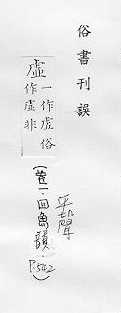 俗書刊誤
平聲
虛一作虗俗
作虚非
(卷一.四魚韻.
P.542